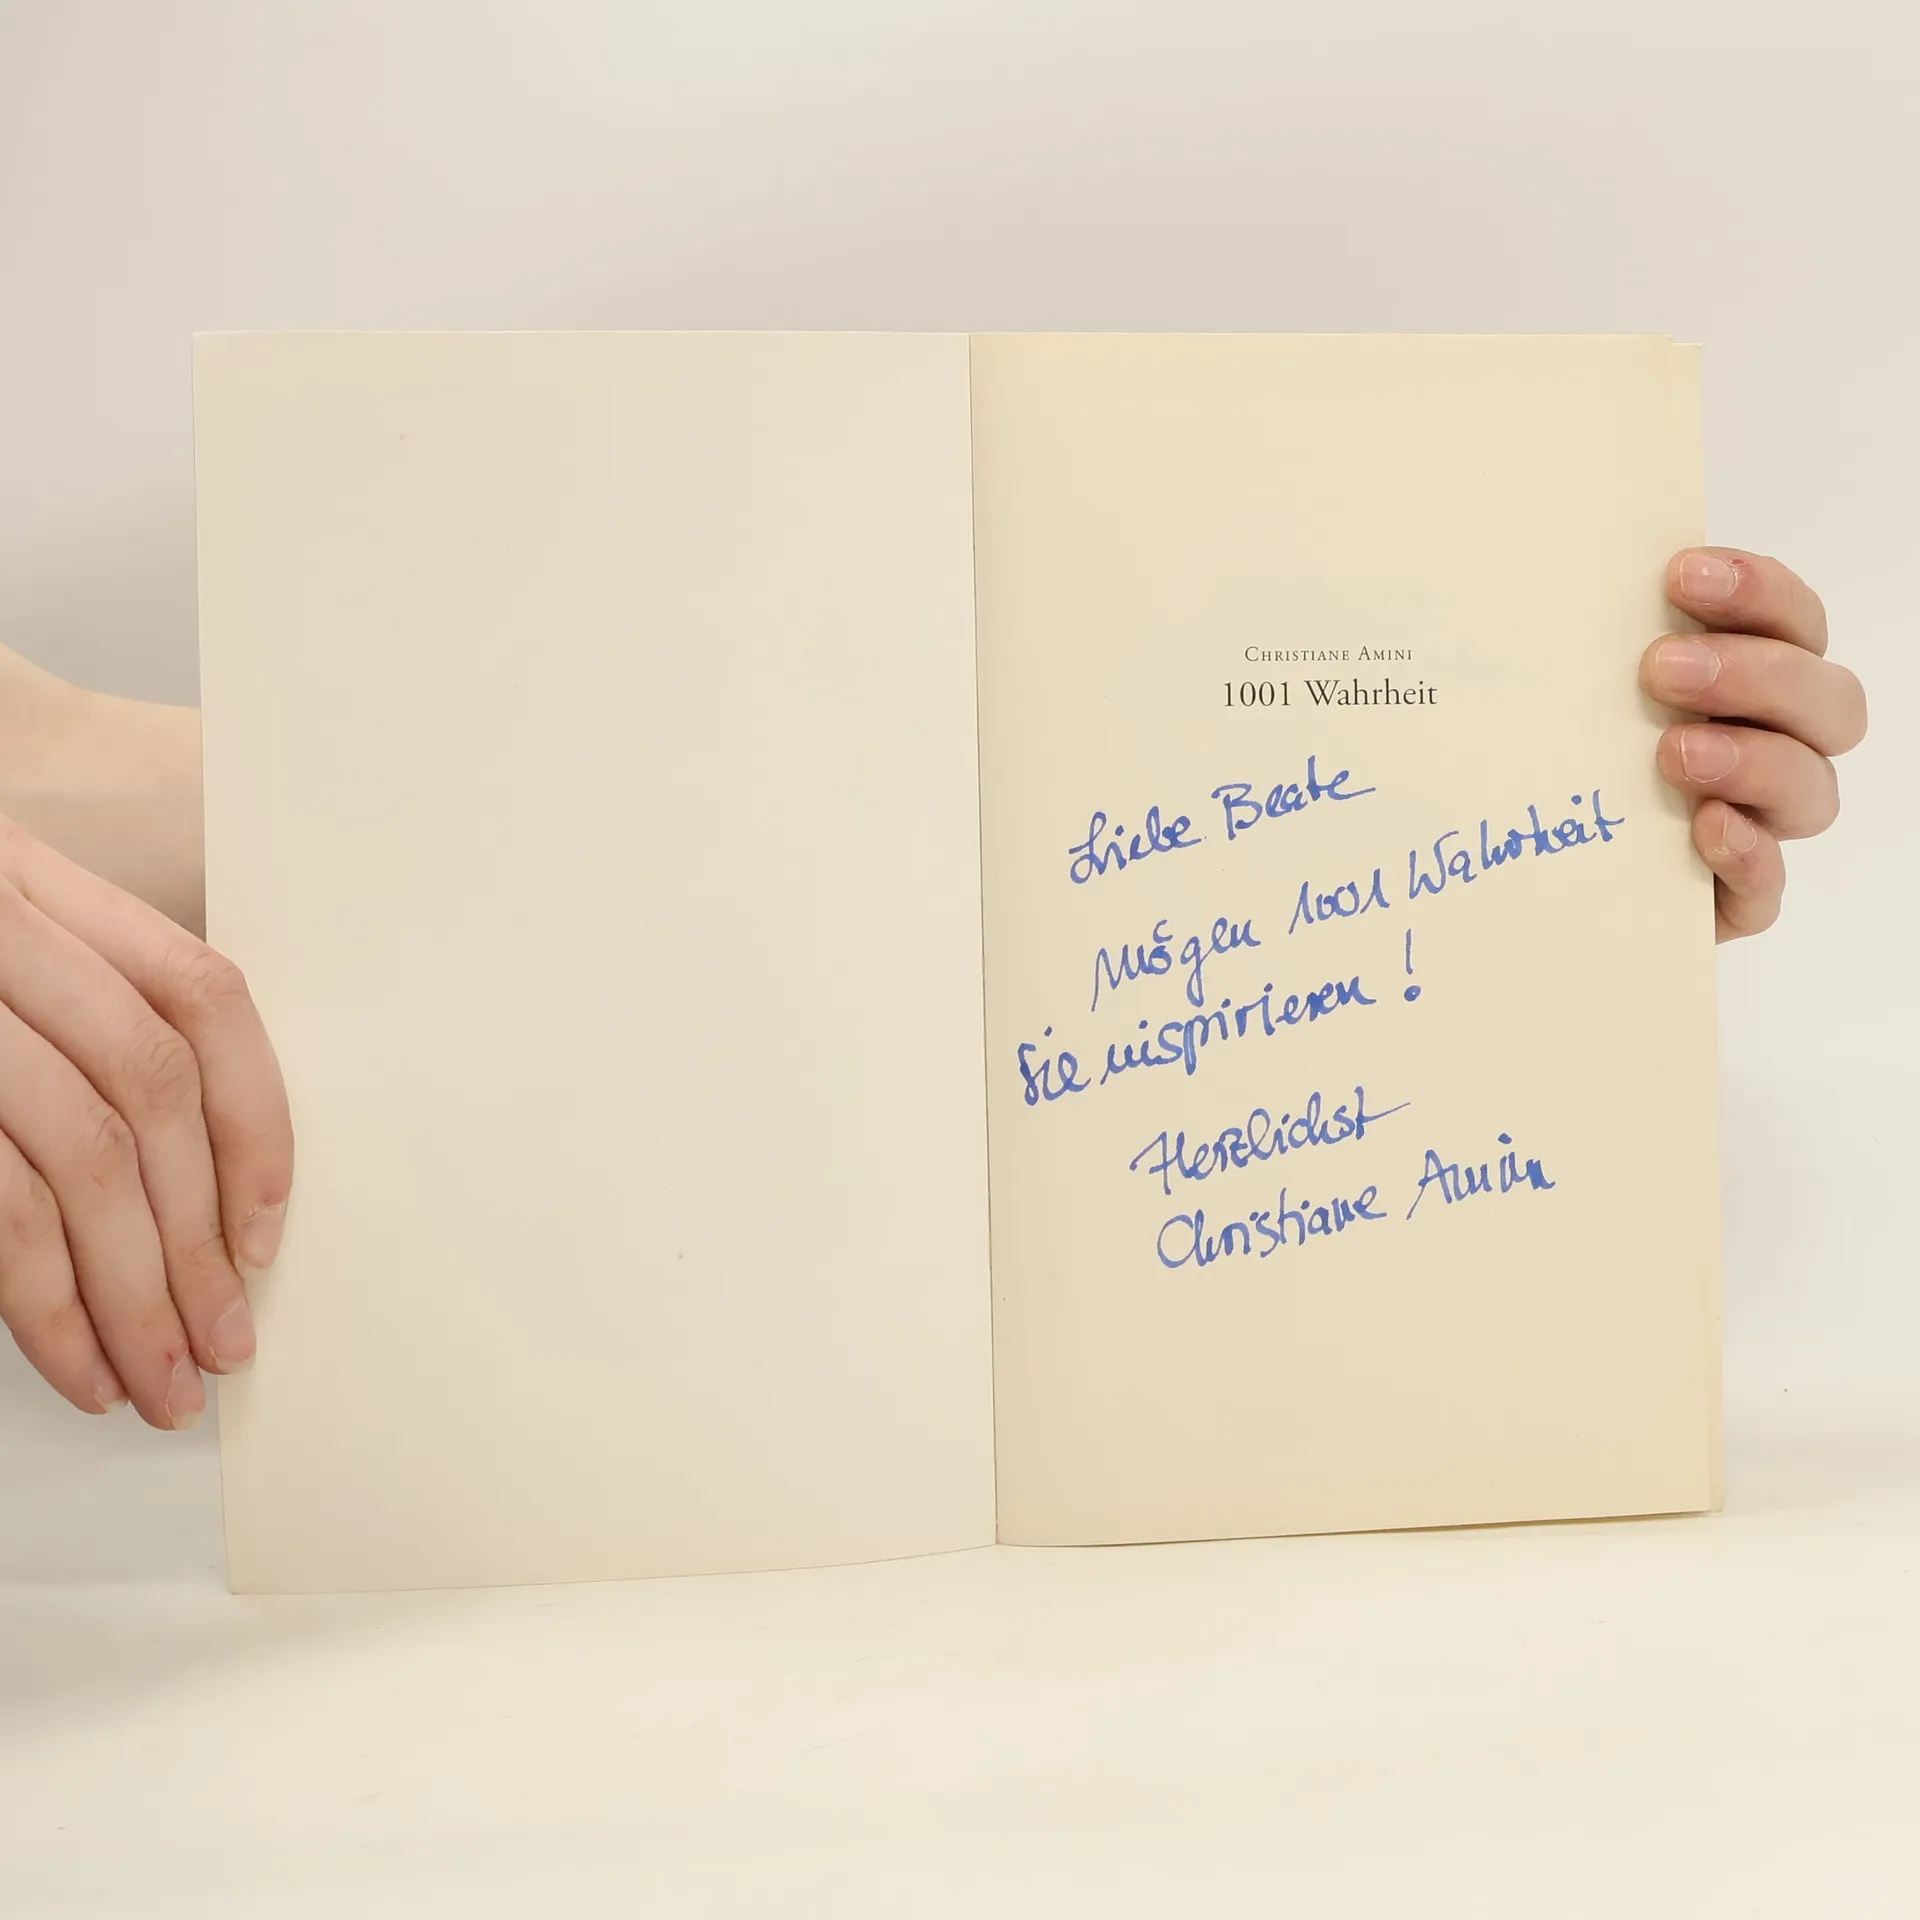 CHRISTIANE AMINI
1001 Wahrheit
Liebe Beate
Mögen 1001 Wahrheit
Sie inspirieren !
Herzlichst
Christiane Amini